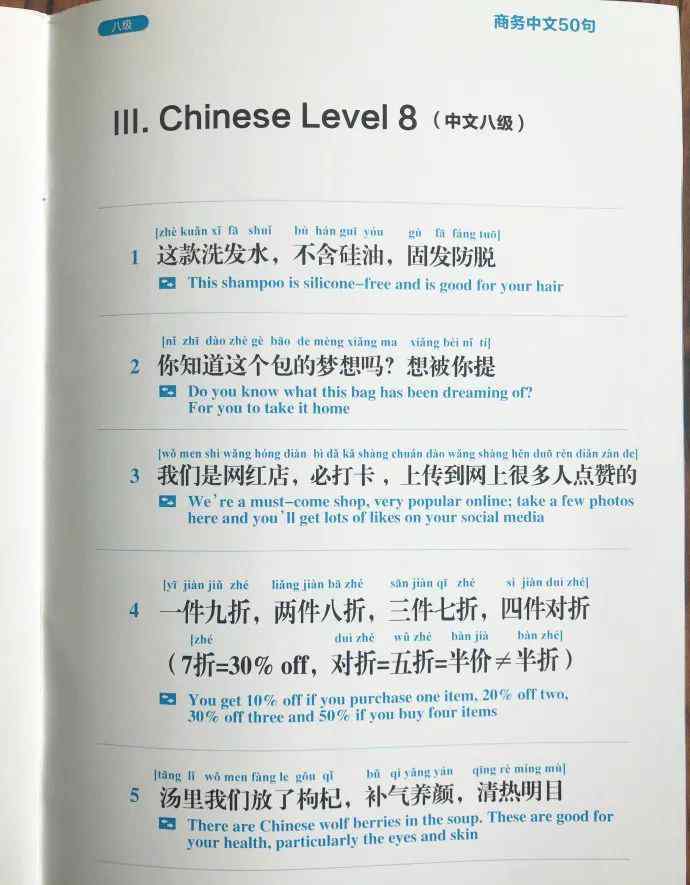 八级
商务中文50句
III. Chinese Level 8（中文八级）
[zhè kuǎn xǐ fà shuǐ bù hán guī yóu gù fà fáng tuō]
1 这款洗发水，不含硅油，固发防脱
This shampoo is silicone-free and is good for your hair
[nǐ zhī dào zhè gè bāo de mèng xiǎng ma xiǎng bèi nǐ tí]
2 你知道这个包的梦想吗？想被你提
Do you know what this bag has been dreaming of?
For you to take it home
[wǒ men shì wǎng hóng diàn bì dǎ kǎ shàng chuán dào wǎng shàng hěn duō rén diǎn zàn de]
3 我们是网红店，必打卡，上传到网上很多人点赞的
We're a must-come shop, very popular online; take a few photos
here and you'll get lots of likes on your social media
[yī jiàn jiǔ zhé liǎng jiàn bā zhé sān jiàn qī zhé sì jiàn duì zhé]
4 一件九折，两件八折，三件七折，四件对折
[zhé duì zhé wǔ zhé bàn jià bàn zhé]
（7折=30% off，对折=五折=半价≠半折）
You get 10% off if you purchase one item, 20% off two,
30% off three and 50% if you buy four items
[tāng lǐ wǒ men fàng le gǒu qǐ bǔ qì yǎng yán qīng rè míng mù]
5 汤里我们放了枸杞，补气养颜，清热明目
There are Chinese wolf berries in the soup. These are good for
your health, particularly the eyes and skin